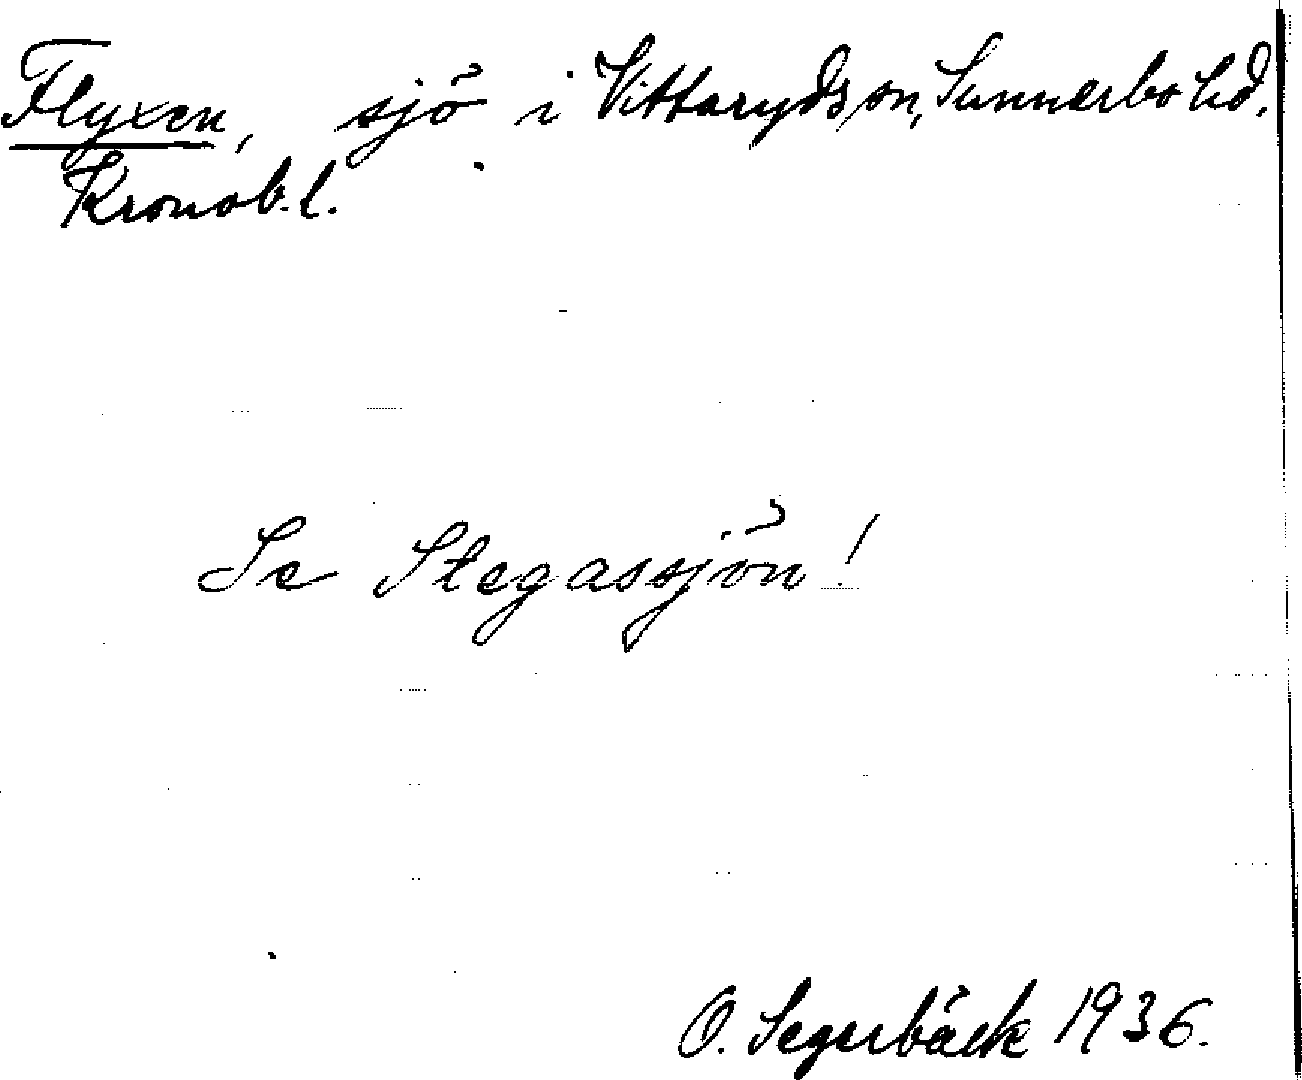 Flyxen, sjö i Vittaryds sn, Sunnerbo hd,
Kronob. l.
Se Stegassjön!
O. Segerbäck 1936.